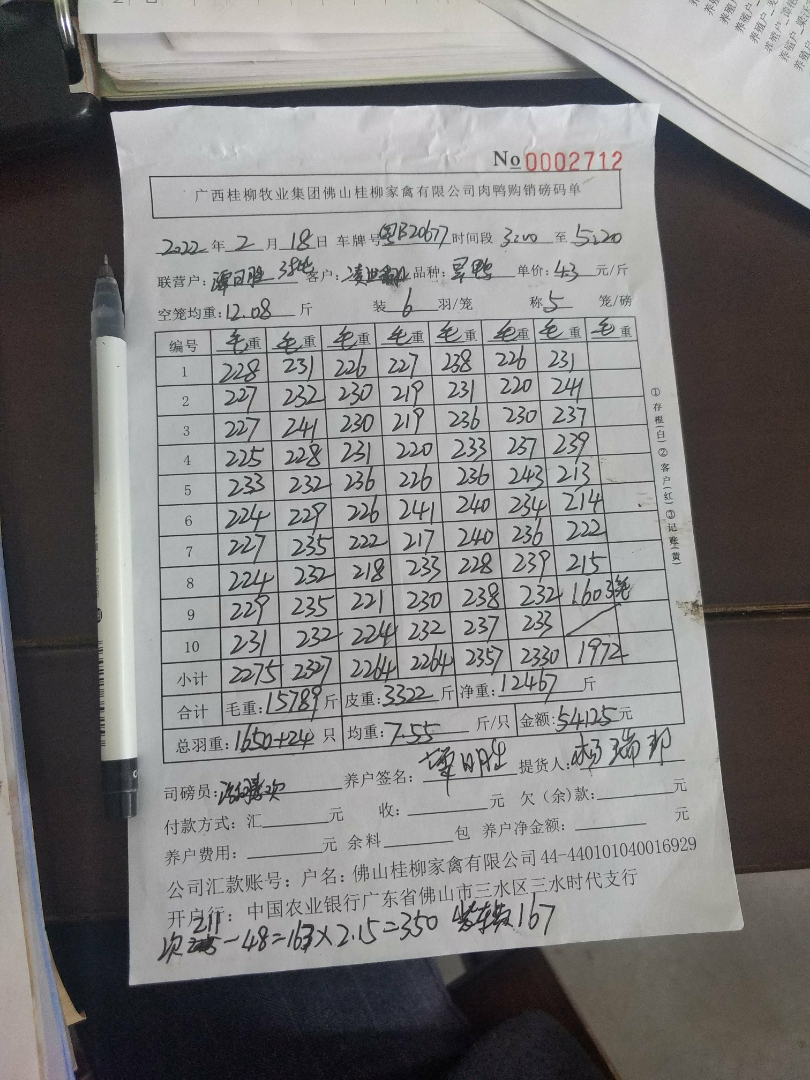 No 0002712
广西桂柳牧业集团佛山桂柳家禽有限公司肉鸭购销磅码单
2022 年 2 月 18 日 车牌号 粤B20677 时间段 3:00 至 5:20
联营户: 客户: 品种: 单价: 4.3 元/斤
空笼均重: 12.08 斤 装 6 羽/笼 称 5 笼/磅
编号 毛重 毛重 毛重 毛重 毛重 毛重 毛重 毛重
1 228 231 226 227 238 226 231
2 227 232 230 219 231 220 241
3 227 241 230 219 236 230 237
4 225 228 231 220 233 237 239
5 233 232 236 226 236 243 213
6 224 229 226 241 240 234 214
7 227 235 222 217 240 236 222
8 224 232 218 233 228 239 215
9 229 235 221 230 238 232 160 3笼
10 231 232 224 232 237 233
小计 2275 2327 2264 2264 2357 2330 1972
合计 毛重: 15789 斤 皮重: 3322 斤 净重: 12467 斤
总羽重: 1650+24 只 均重: 7.55 斤/只 金额: 54125 元
司磅员: 养户签名: 提货人:
付款方式: 汇 元 收: 元 欠（余）款: 元
养户费用: 元 余料 包 养户净金额: 元
公司汇款账号: 户名: 佛山桂柳家禽有限公司 44-440101040016929
开户行: 中国农业银行广东省佛山市三水区三水时代支行
次 211 - 48 = 163 × 2.15 = 350 167
①存根(白) ②客户(红) ③记账(黄)